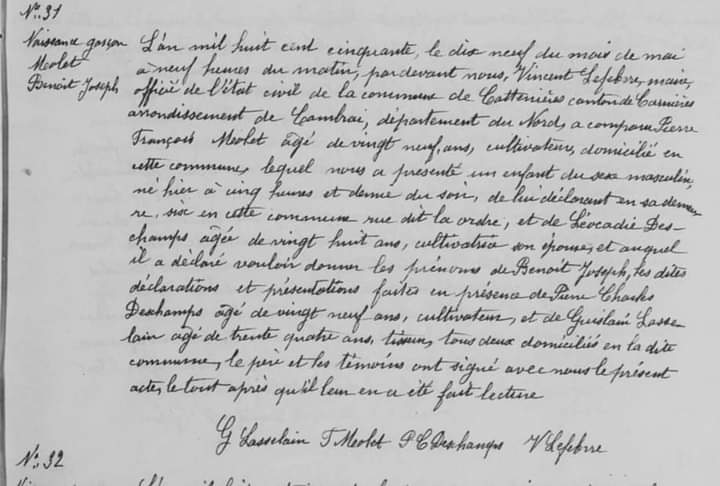 No. 31
Naissance garçon
Meolet
Benoit Joseph
L'an mil huit cent cinquante, le dix neuf du mois de mai
à neuf heures du matin, pardevant nous, Vincent Lefebvre, maire,
officier de l'état civil de la commune de Cattenières canton de Carnières
arrondissement de Cambrai, département du Nord, a comparu Pierre
François Meolet âgé de vingt neuf ans, cultivateur, domicilié en
cette commune, lequel nous a présenté un enfant du sexe masculin,
né hier à cinq heures et demie du soir, de lui déclarant en sa demeu
re, sise en cette commune rue dit la ordre, et de Léocadie Des-
champs âgée de vingt huit ans, cultivatrice son épouse, et auquel
il a déclaré vouloir donner les prénoms de Benoit Joseph, les dites
déclarations et présentations faites en présence de Pierre Charles
Deschamps âgé de vingt neuf ans, cultivateur, et de Guislain Lasse-
lain âgé de trente quatre ans, tisseur, tous deux domiciliés en la dite
commune, le père et les témoins ont signé avec nous le présent
acte, le tout après qu'il leur en a été fait lecture
G Lasselain F Meolet P C Deschamps V Lefebvre
No. 32